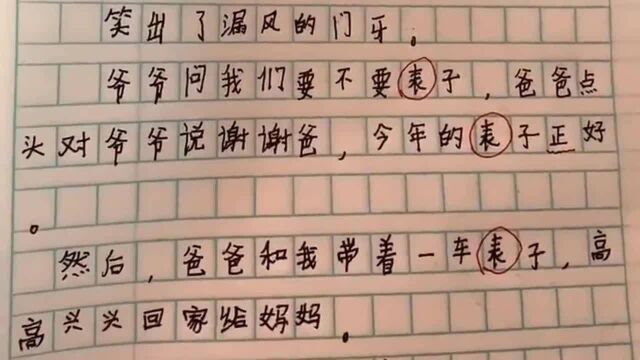 笑出了漏风的门牙。
爷爷问我们要不要表子，爸爸点
头对爷爷说谢谢爸，今年的表子正好
。
然后，爸爸和我带着一车表子，高
高兴兴回家给妈妈。